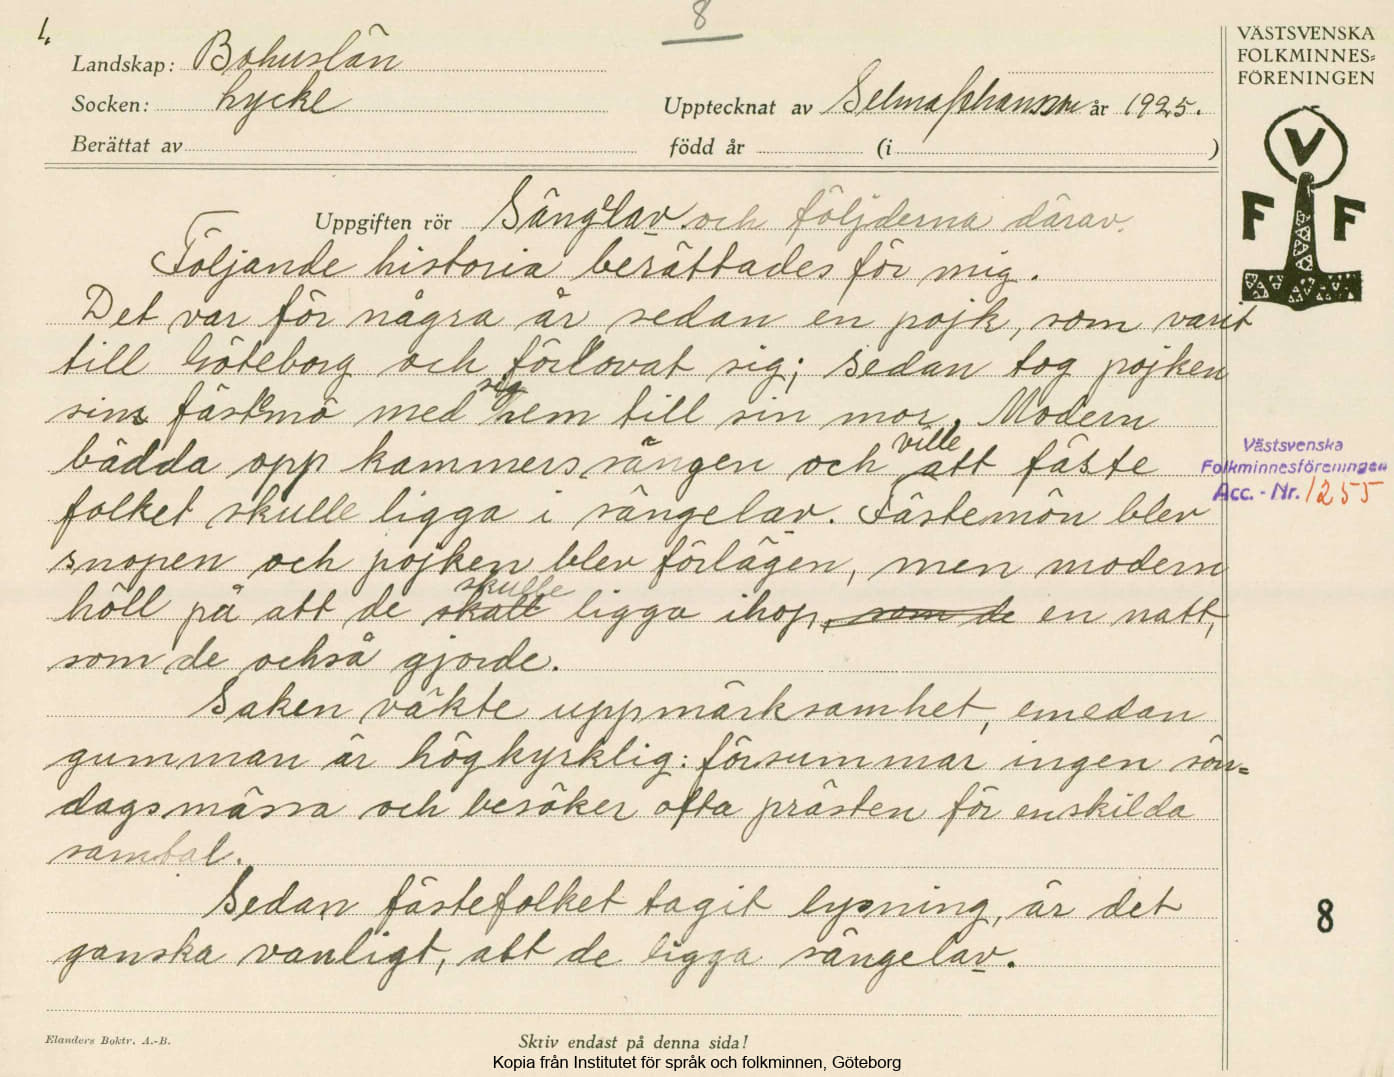 1.
8
Landskap: Bohuslän
Socken: Lycke
Upptecknat av Selma Johansson år 1925.
Berättat av
född år (i )
VÄSTSVENSKA
FOLKMINNES=
FÖRENINGEN
V
F F
Uppgiften rör Sängelav och följderna därav.
Följande historia berättades för mig.
Det var för några år sedan en pojk, som varit
till Göteborg och förlovat sig; sedan tog pojken
sin fästemö med sig hem till sin mor. Modern
bädda opp kammerssängen och ville att fäste
folket skulle ligga i sängelav. Fästemön blev
snopen och pojken blev förlägen, men modern
höll på att de skall skulle ligga ihop, som de en natt,
som de också gjorde.
Saken väkte uppmärksamhet, emedan
gumman är högkyrklig: försummar ingen sön=
dagsmässa och besöker ofta prästen för enskilda
samtal.
Sedan fästefolket tagit lysning, är det
ganska vanligt, att de ligga sängelav.
Västsvenska
Folkminnesföreningen
Acc. - Nr. 1255
8
Elanders Boktr. A.-B.
Skriv endast på denna sida!
Kopia från Institutet för språk och folkminnen, Göteborg